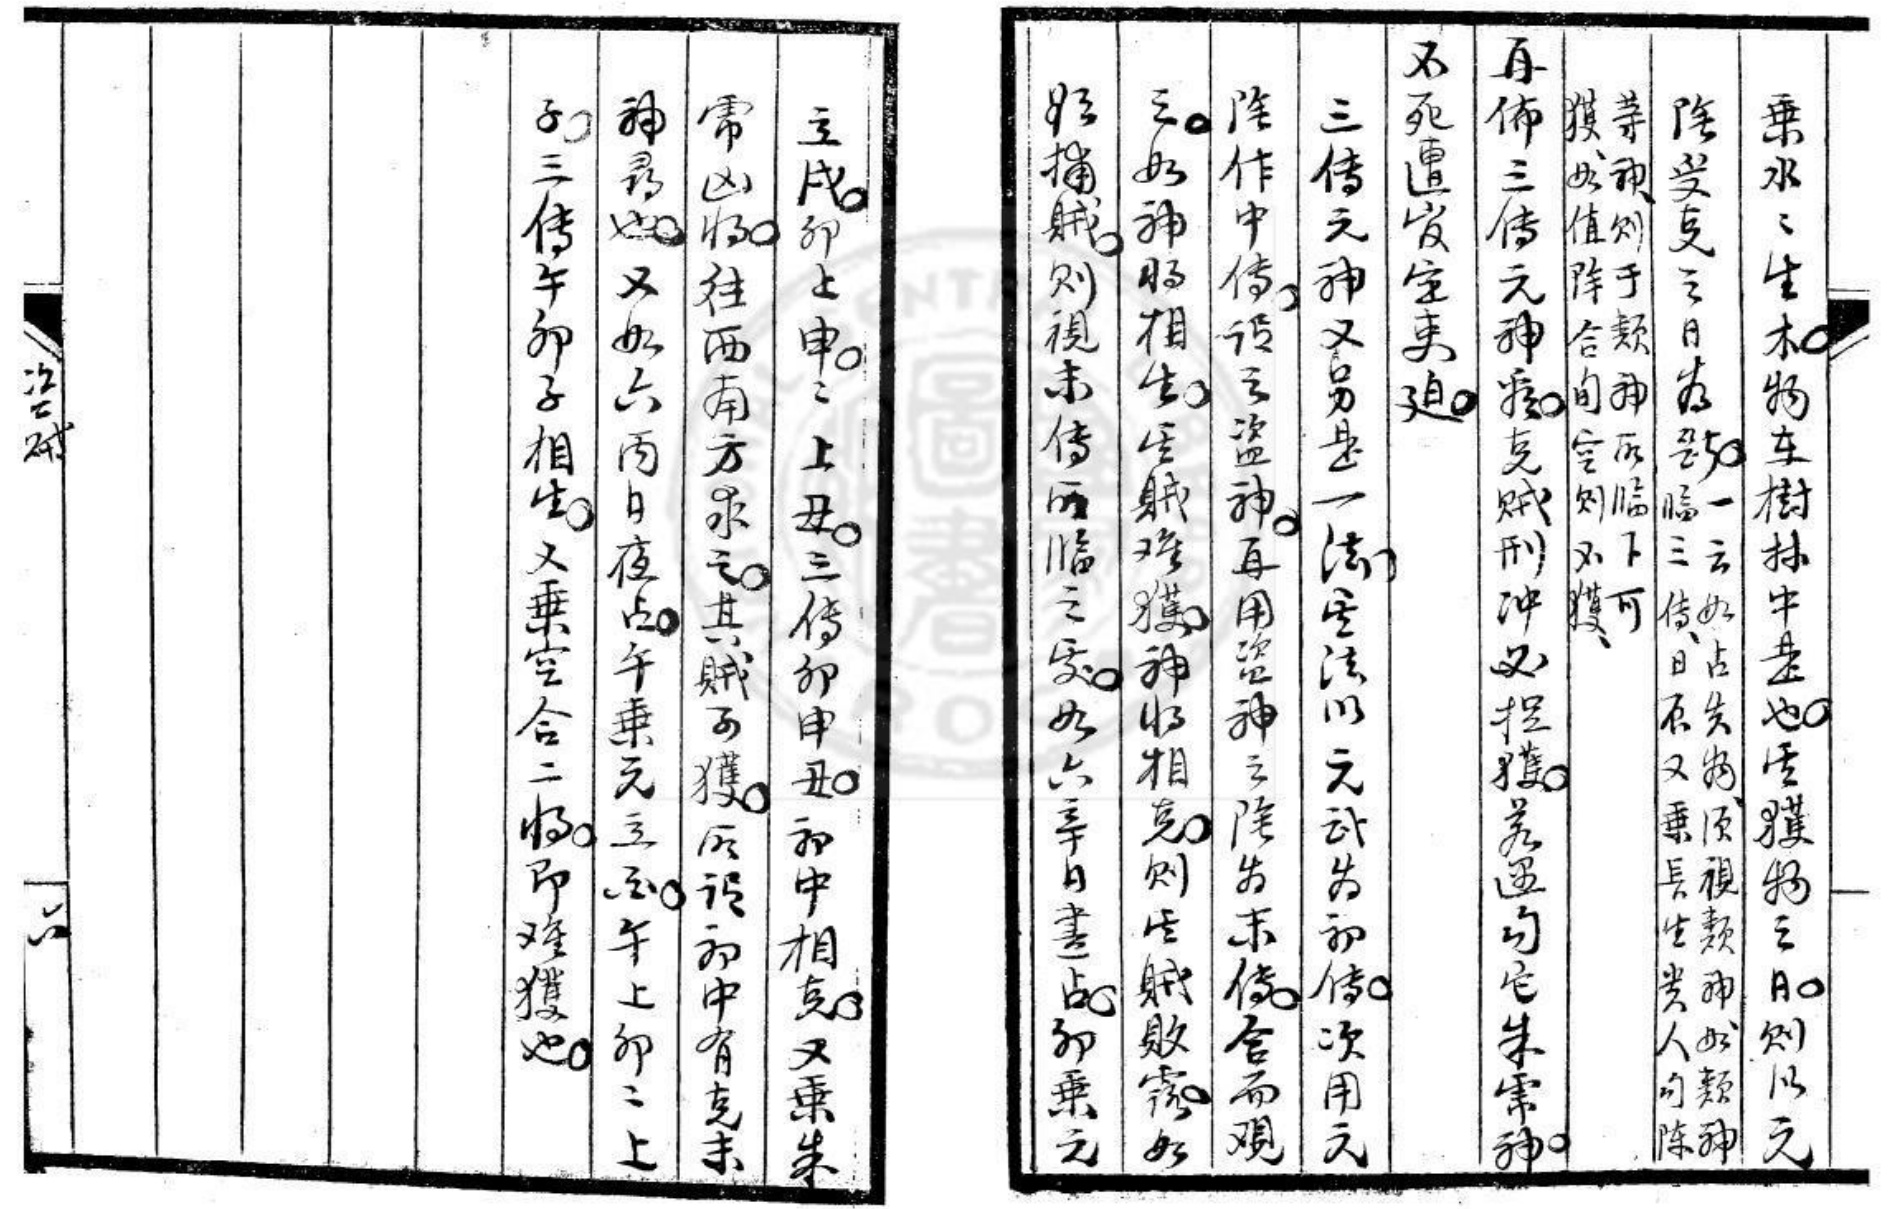 乘水〻生木。物在樹林中是也。其獲物之日。則以元
陰受克之日為的。一云如占失物、須視類神、如類神
臨三傳、日辰又乘長生貴人勾陳
等神、則于類神所臨下可
獲、如值陣合旬空則不獲、
再佈三傳元神、克賊刑冲必捉獲。若遇勾它朱常神。
不死遭官定吏迫。
三傳元神又另是一法。其法以元武為初傳。次用元
陰作中傳。謂之盜神。再用盜神之陰為末傳。合而觀
之。如神將相生。其賊难獲。神將相克。則其賊敗露。如
欲捕賊。則視末傳所臨之處。如六辛日晝占。卯乘元
立戌。卯上申。〻上丑。三傳卯申丑。初中相克。又乘朱
常凶將。往西南方求之。其賊可獲。所謂初中有克末
神尋也。又如六丙日夜占。午乘元立酉。午上卯〻上
子。三傳午卯子相生。又乘空合二將。即难獲也。
盜賊
六